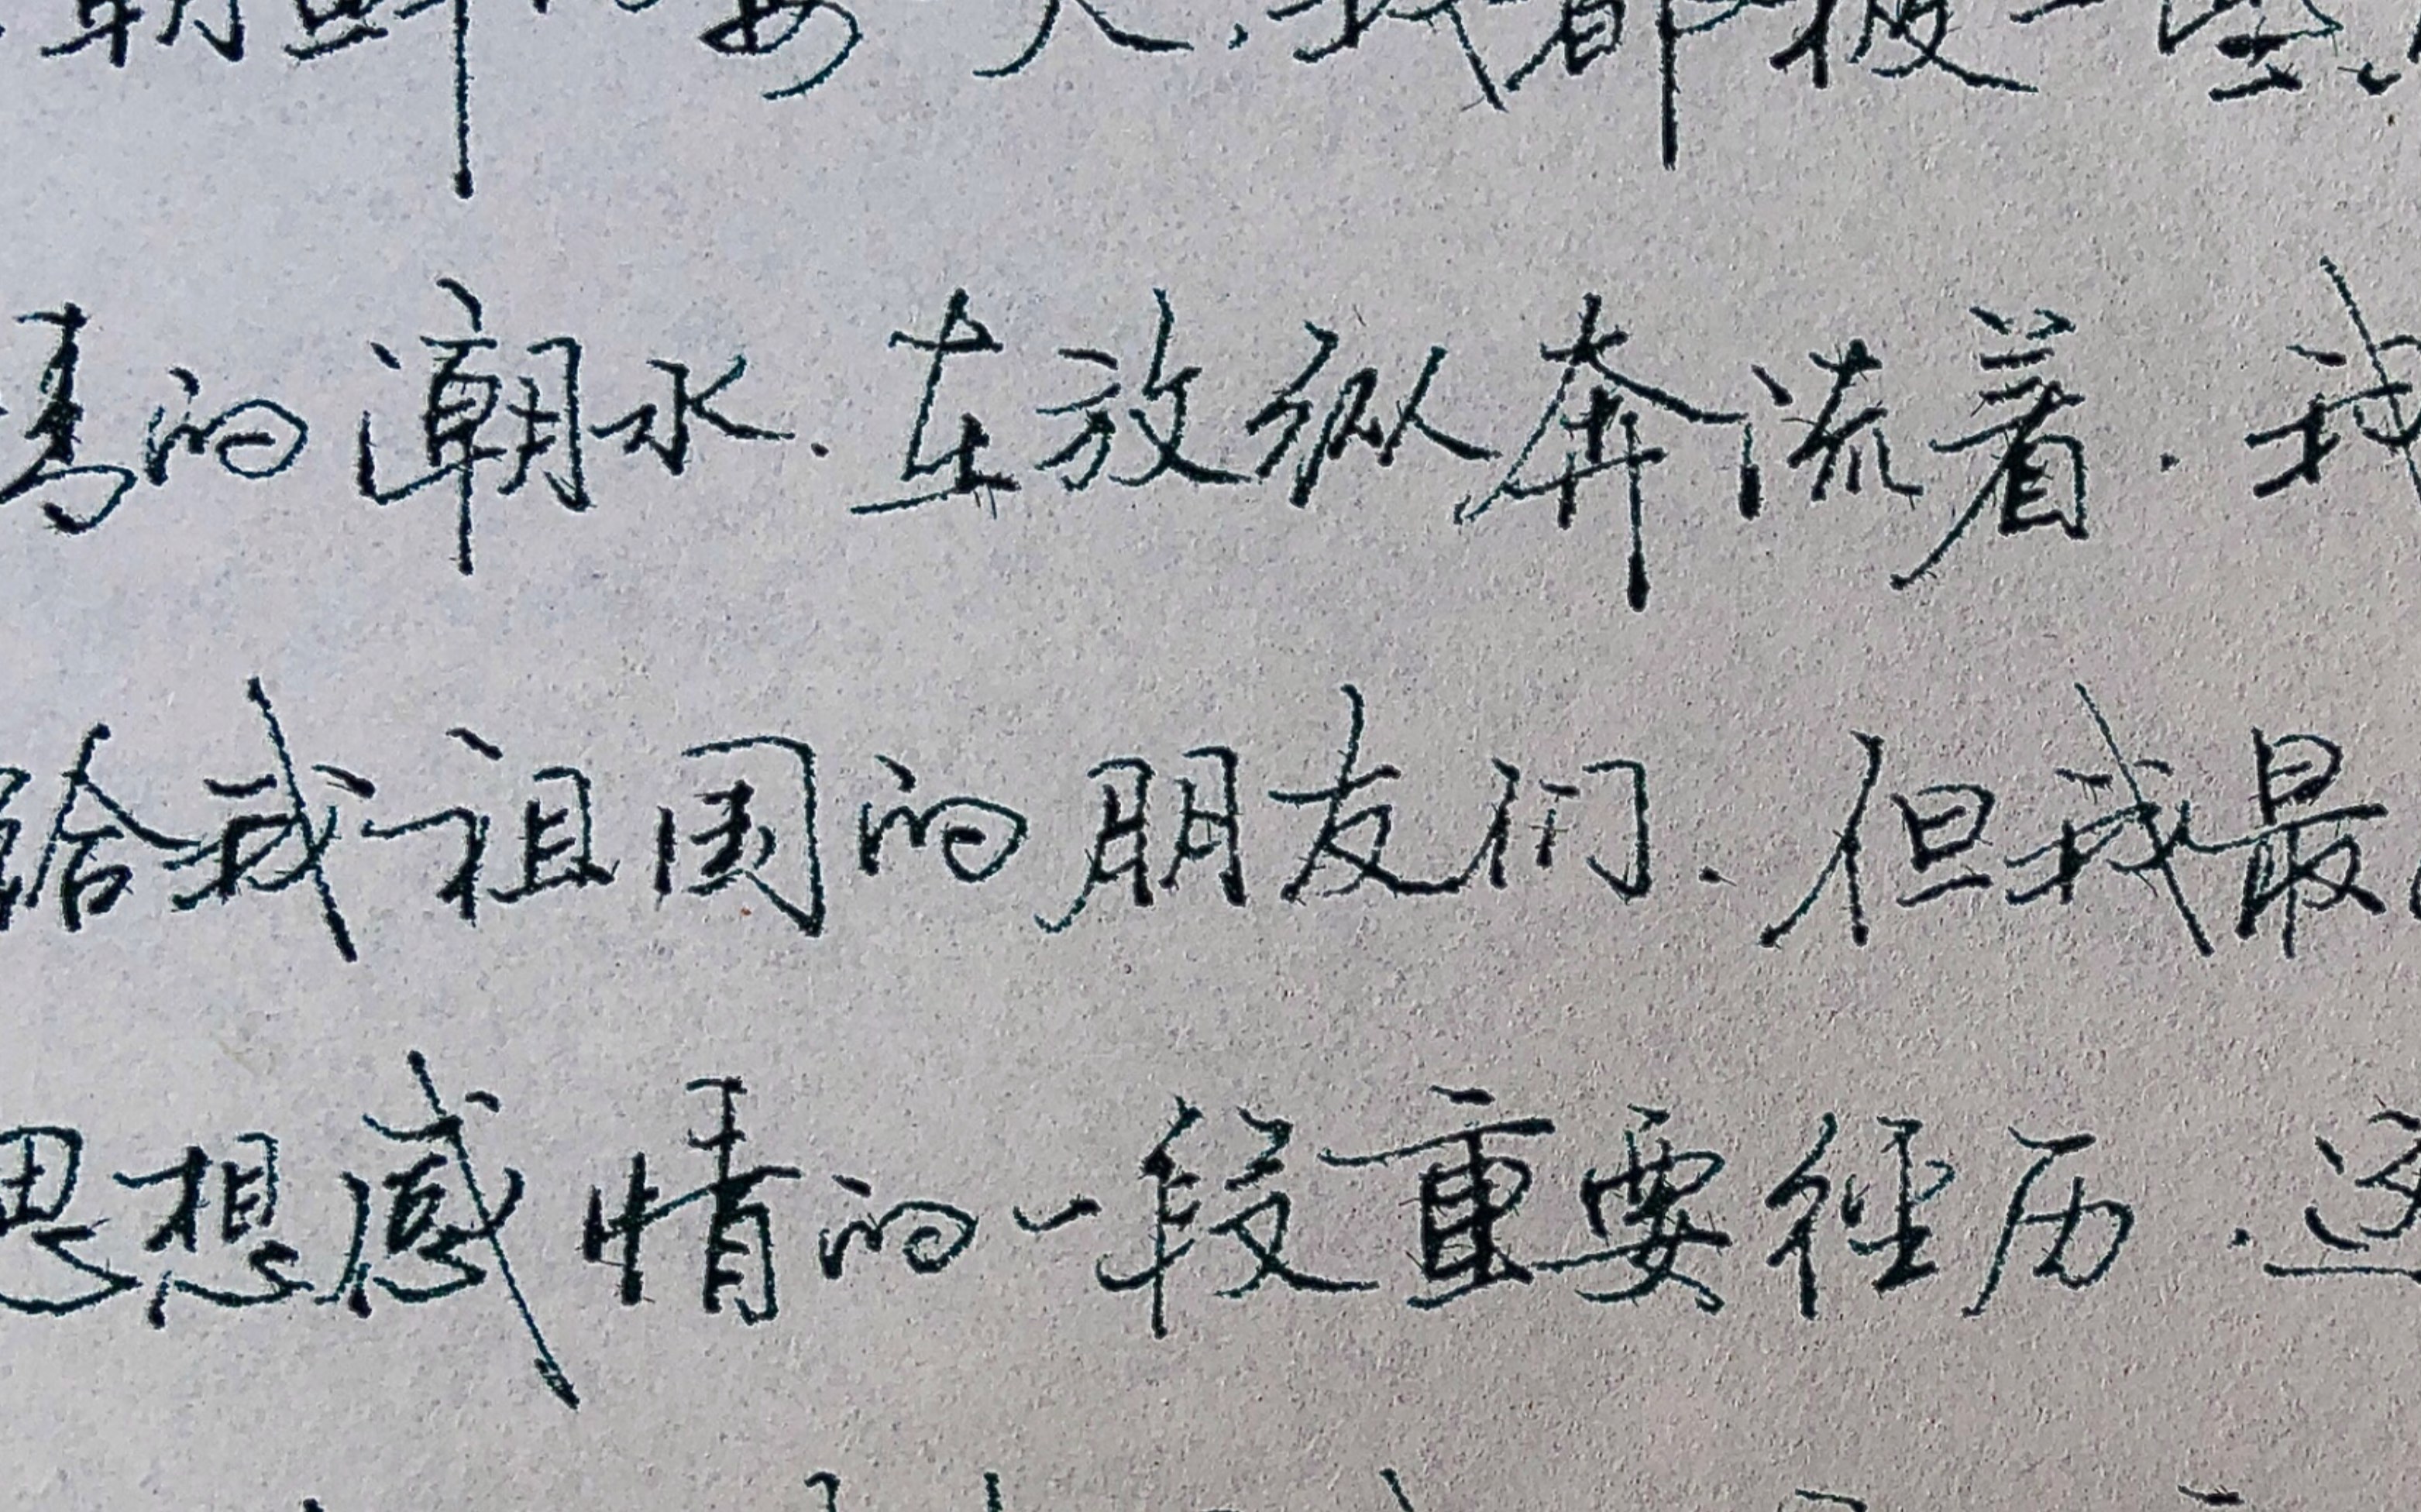 朝鲜的每一天，我都被一些
的潮水，在放纵奔流着。我
给我祖国的朋友们。但我最
思想感情的一段重要经历，这